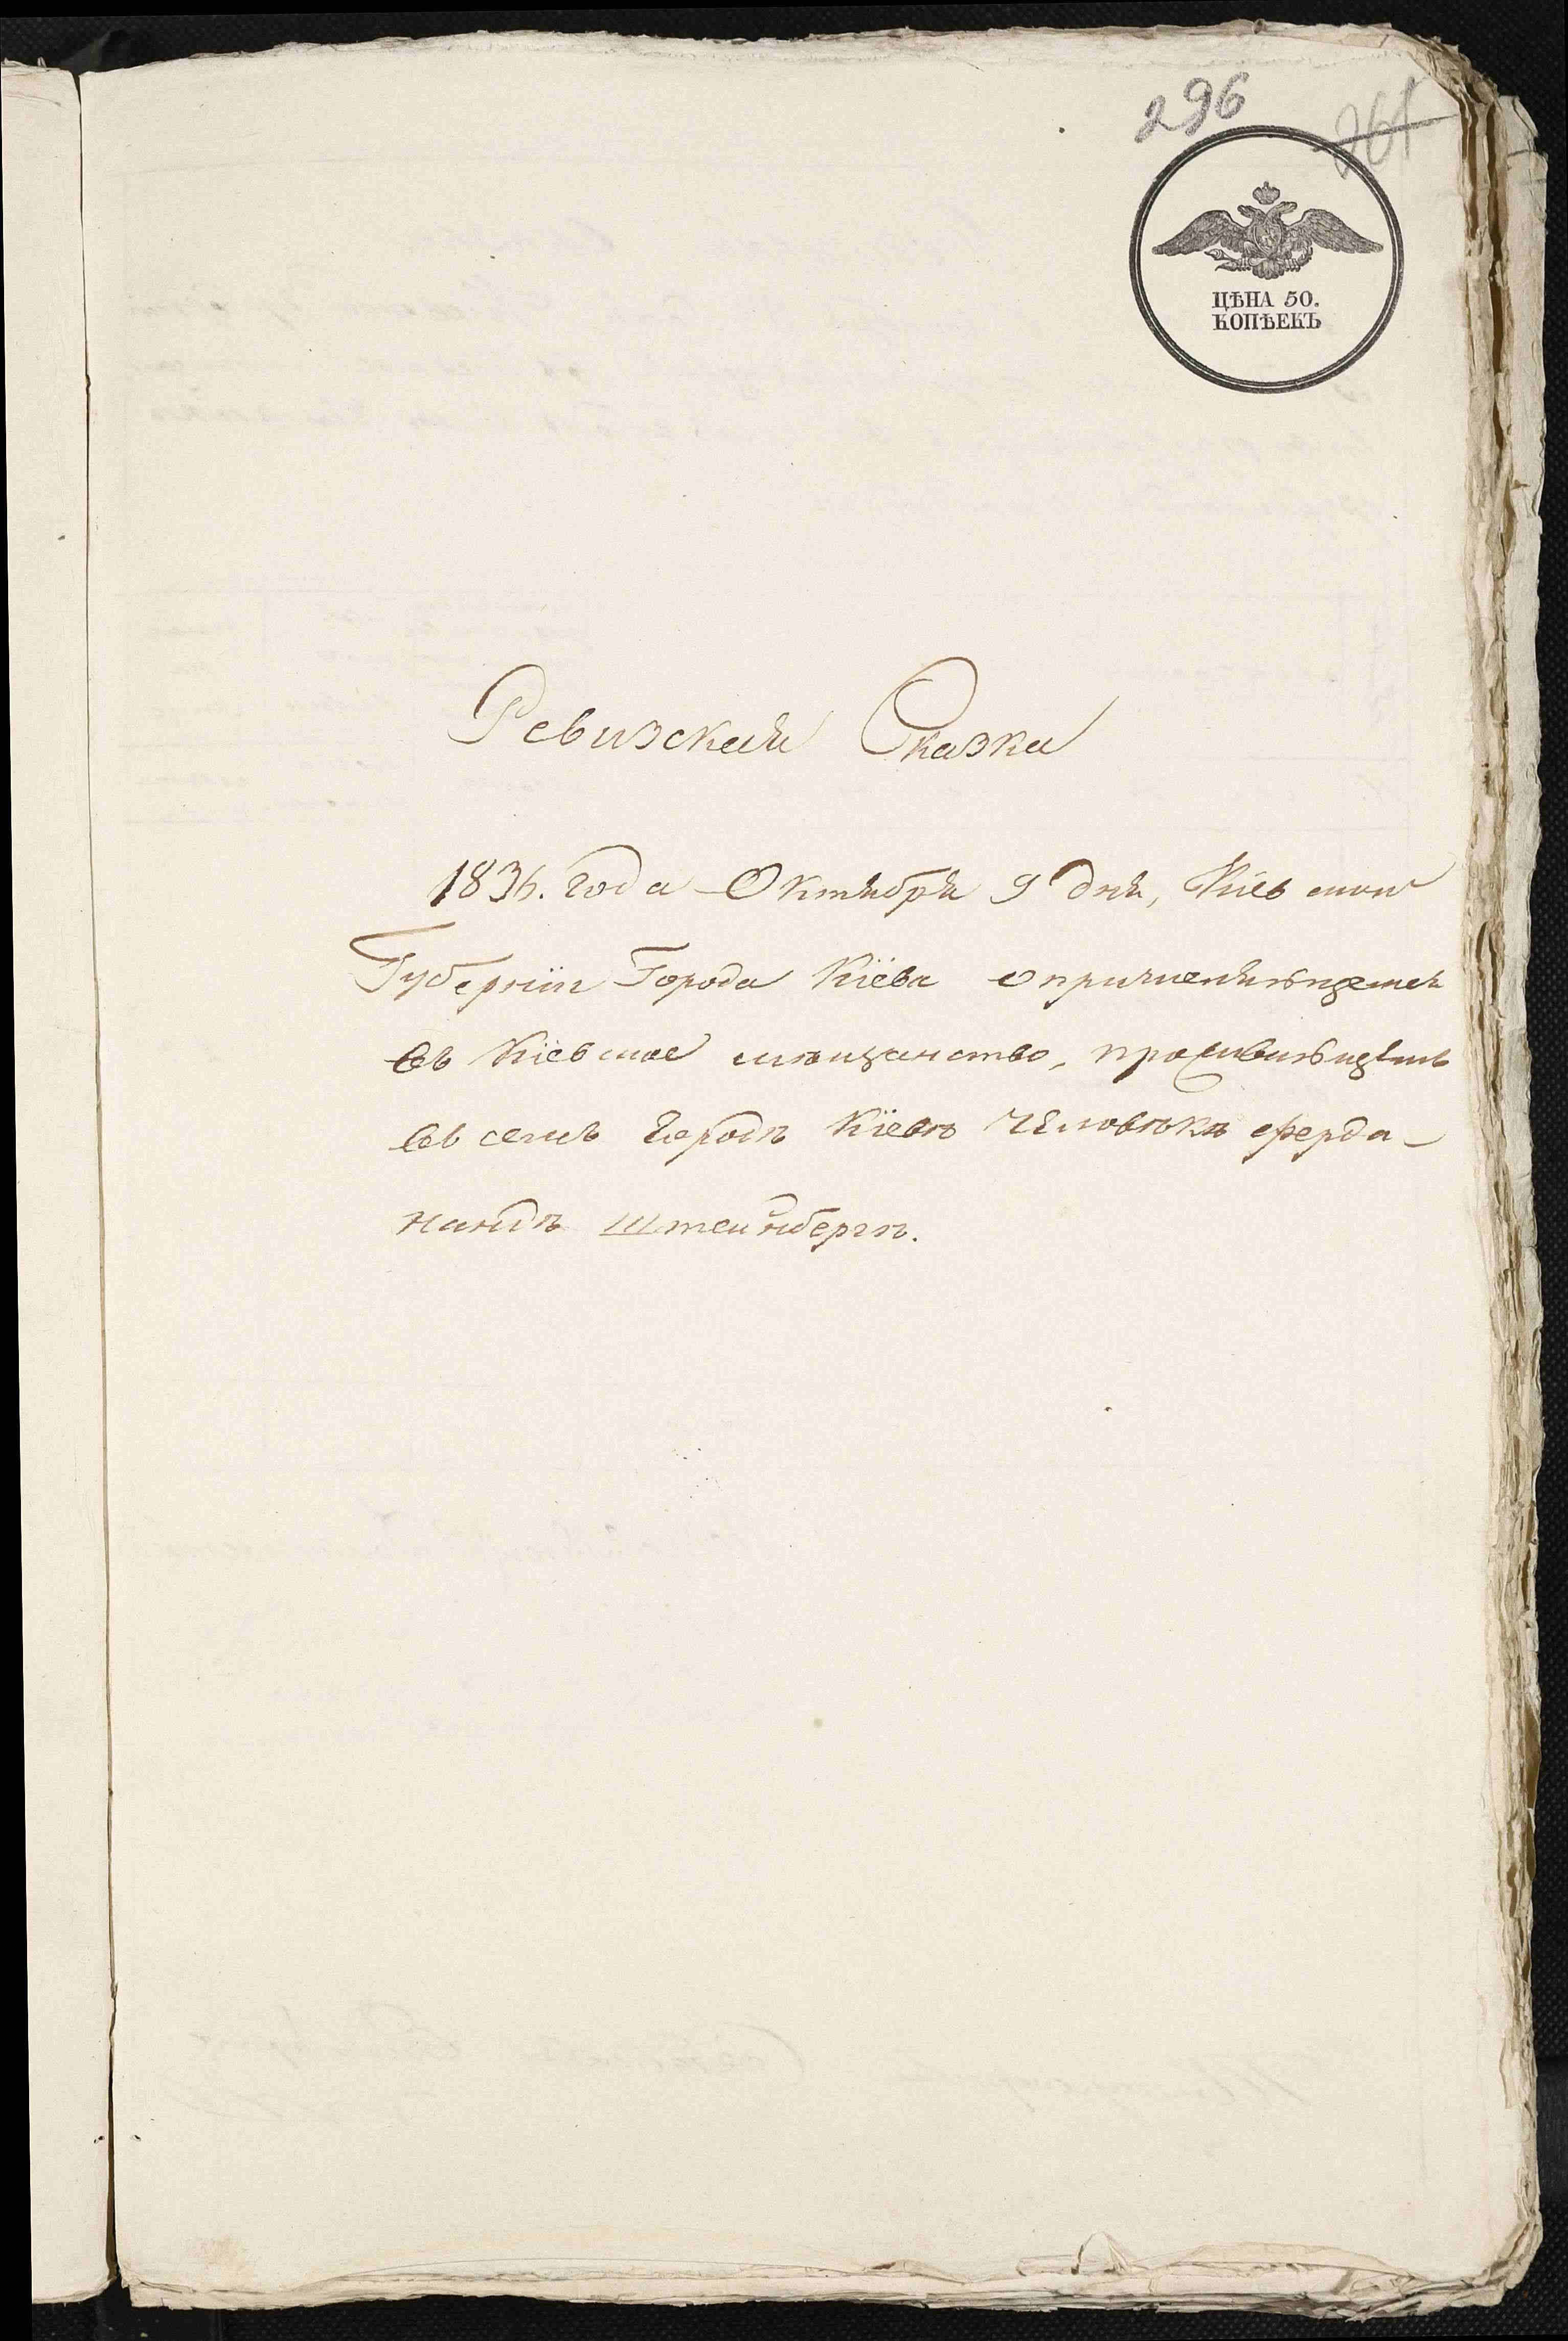 296
261
ЦѢНА 50.
КОПѢЕКЪ
Ревизская Сказка
года Октября 9 дня, Кіевской
Губерніи Города Кіева о причисляющемся
въ Кіевское мѣщанство, проживающемъ
въ семъ городѣ Кіевѣ человѣкѣ Ферди-
нандѣ Штейнбергѣ.